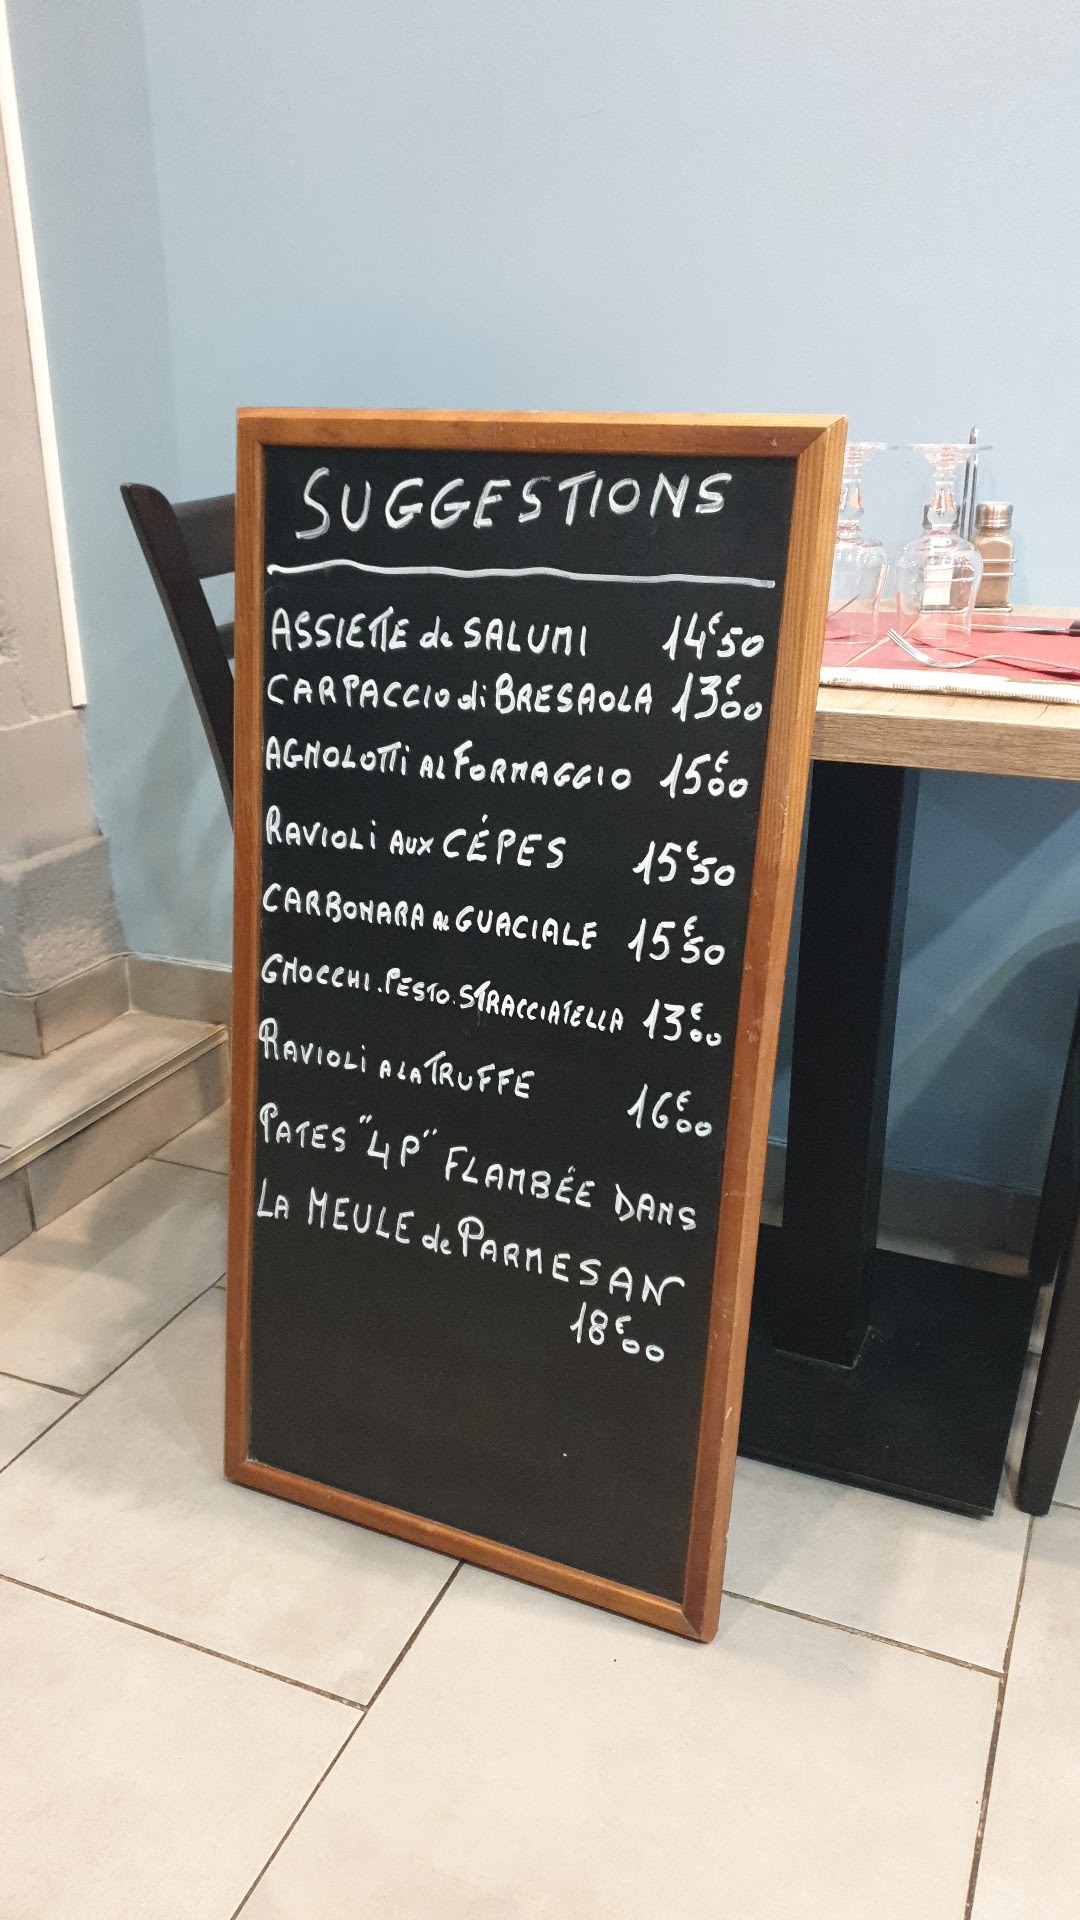 SUGGESTIONS
ASSIETTE de SALUMI 14€50
CARPACCIO di BRESAOLA 13€00
AGNOLOTTI AL FORMAGGIO 15€00
RAVIOLI AUX CÉPES 15€50
CARBONARA AL GUACIALE 15€50
GNOCCHI.PESTO.STRACCIATELLA 13€00
RAVIOLI A LA TRUFFE 16€00
PATES "4P" FLAMBÉE DANS
LA MEULE de PARMESAN
18€00